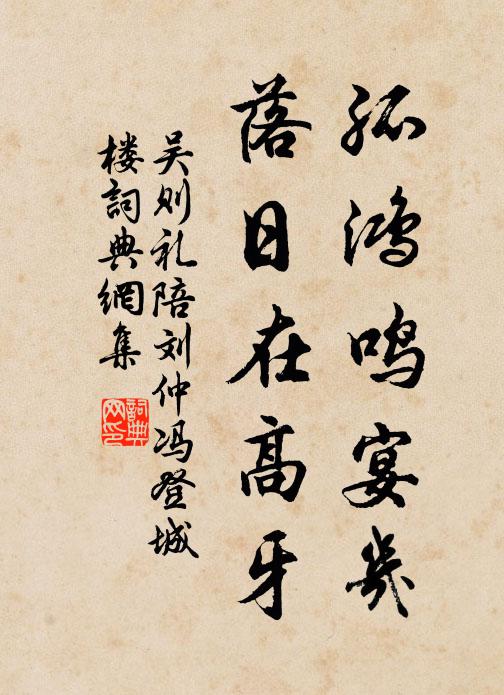 孤鸿鸣宴几
落日在高牙
吴则礼陪刘仲冯登城
楼词典網集
詞典
网印